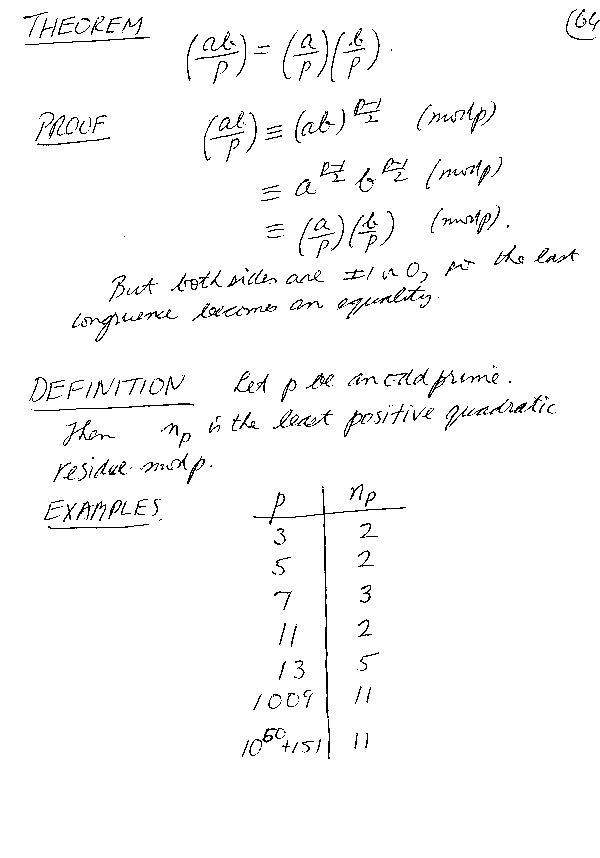 THEOREM (64
(ab/p) = (a/p)(b/p).
PROOF (ab/p) ≡ (ab)^((p-1)/2) (mod p)
≡ a^((p-1)/2) b^((p-1)/2) (mod p)
≡ (a/p)(b/p) (mod p).
But both sides are ±1 or 0, so the last
congruence becomes an equality.
DEFINITION Let p be an odd prime.
Then n_p is the least positive quadratic
residue mod p.
EXAMPLES.
p n_p
3 2
5 2
7 3
11 2
13 5
1009 11
10^50+151 11